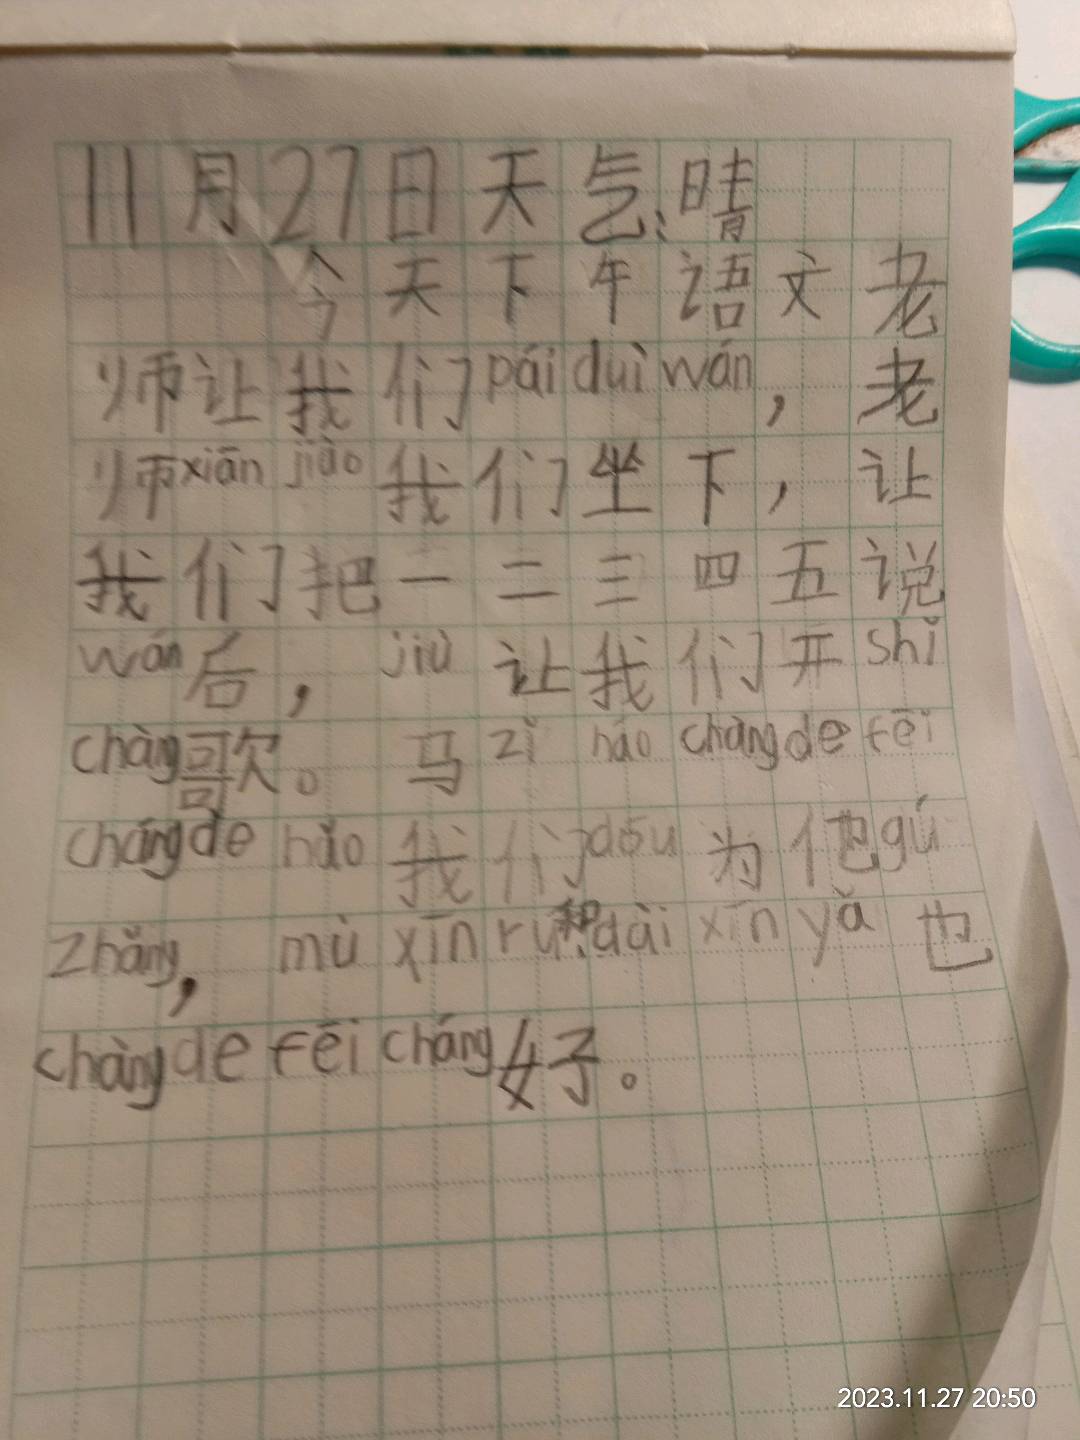 11月27日天气:晴
今天下午语文老
师让我们pái duì wán，老
师xiān jiāo我们坐下，让
我们把一二三四五说
wán后，jiù让我们开shǐ
chàng歌。马zǐ háo chàng de fēi
cháng de hǎo我们dōu为他gú
zhǎng，mù xīn rú和dài xīn yǎ也
chàng de fēi cháng好。
2023.11.27 20:50